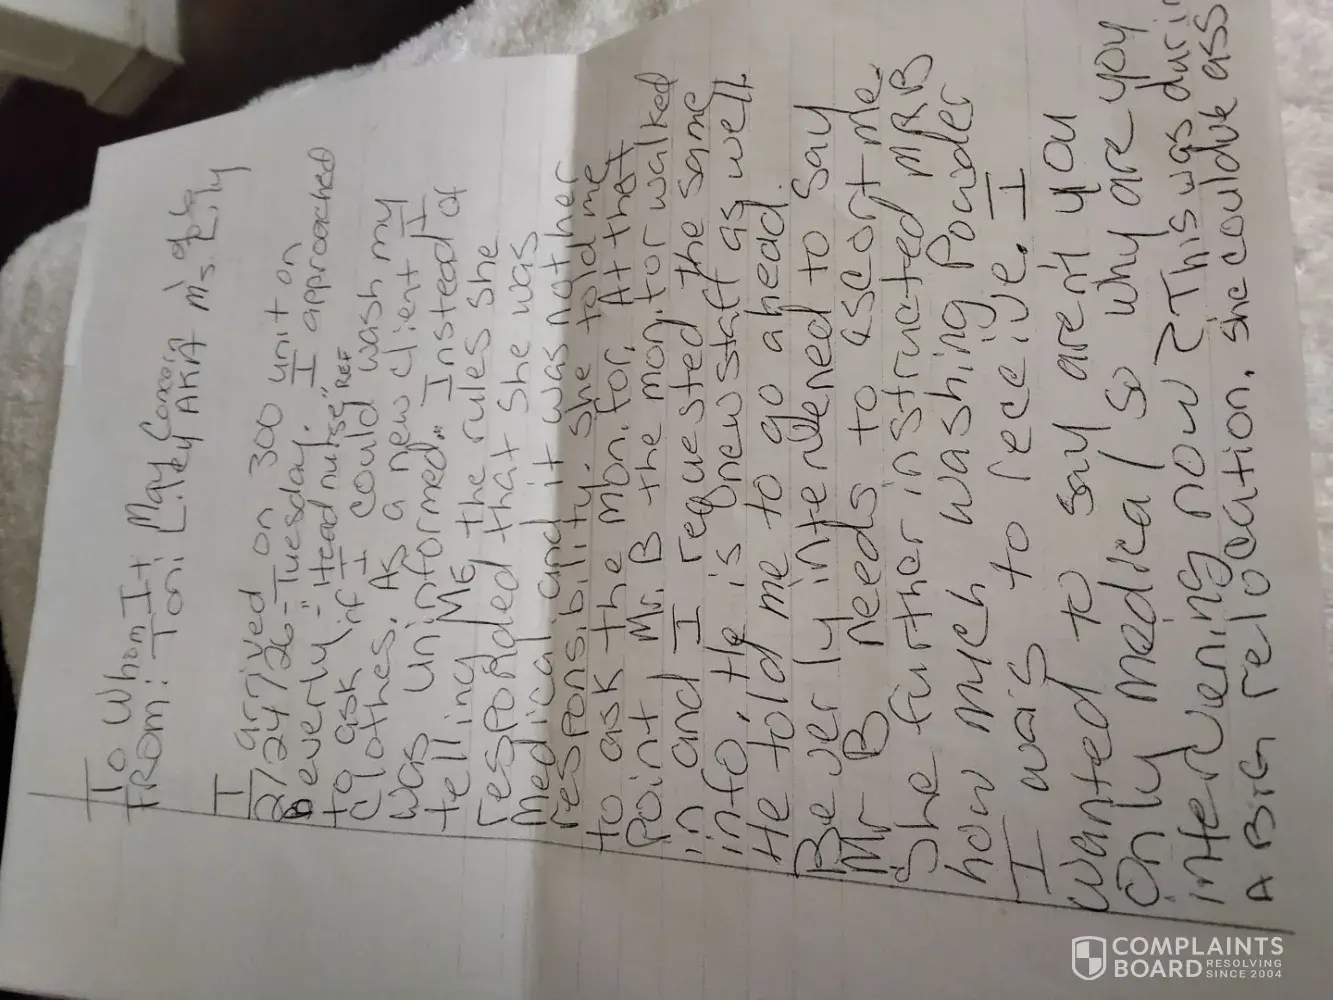 To Whom It May Concern
FROM: Toni Liley AKA Ms. Lily
I arrived on 300 unit on
2/24/26-Tuesday. I approached
beverly-"Head nurse" REF
to ask if I could wash my
clothes. As a new client I
was uninformed... Instead of
telling ME the rules she
responded that she was
medical and it was not her
responsibility. She told me
to ask the monitor, At that
point Mr. B the monitor walked
in and I requested the same
info, He is new staff as well.
He told me to go ahead.
Beverly intervened to say
Mr B needs to ascort me
She further instructed MR B
how much washing Powder
I was to receive. I
wanted to say aren't you
only medical so why are you
intervening now? This was
A BIG relocation. she could
COMPLAINTS
BOARD RESOLVING
SINCE 2004